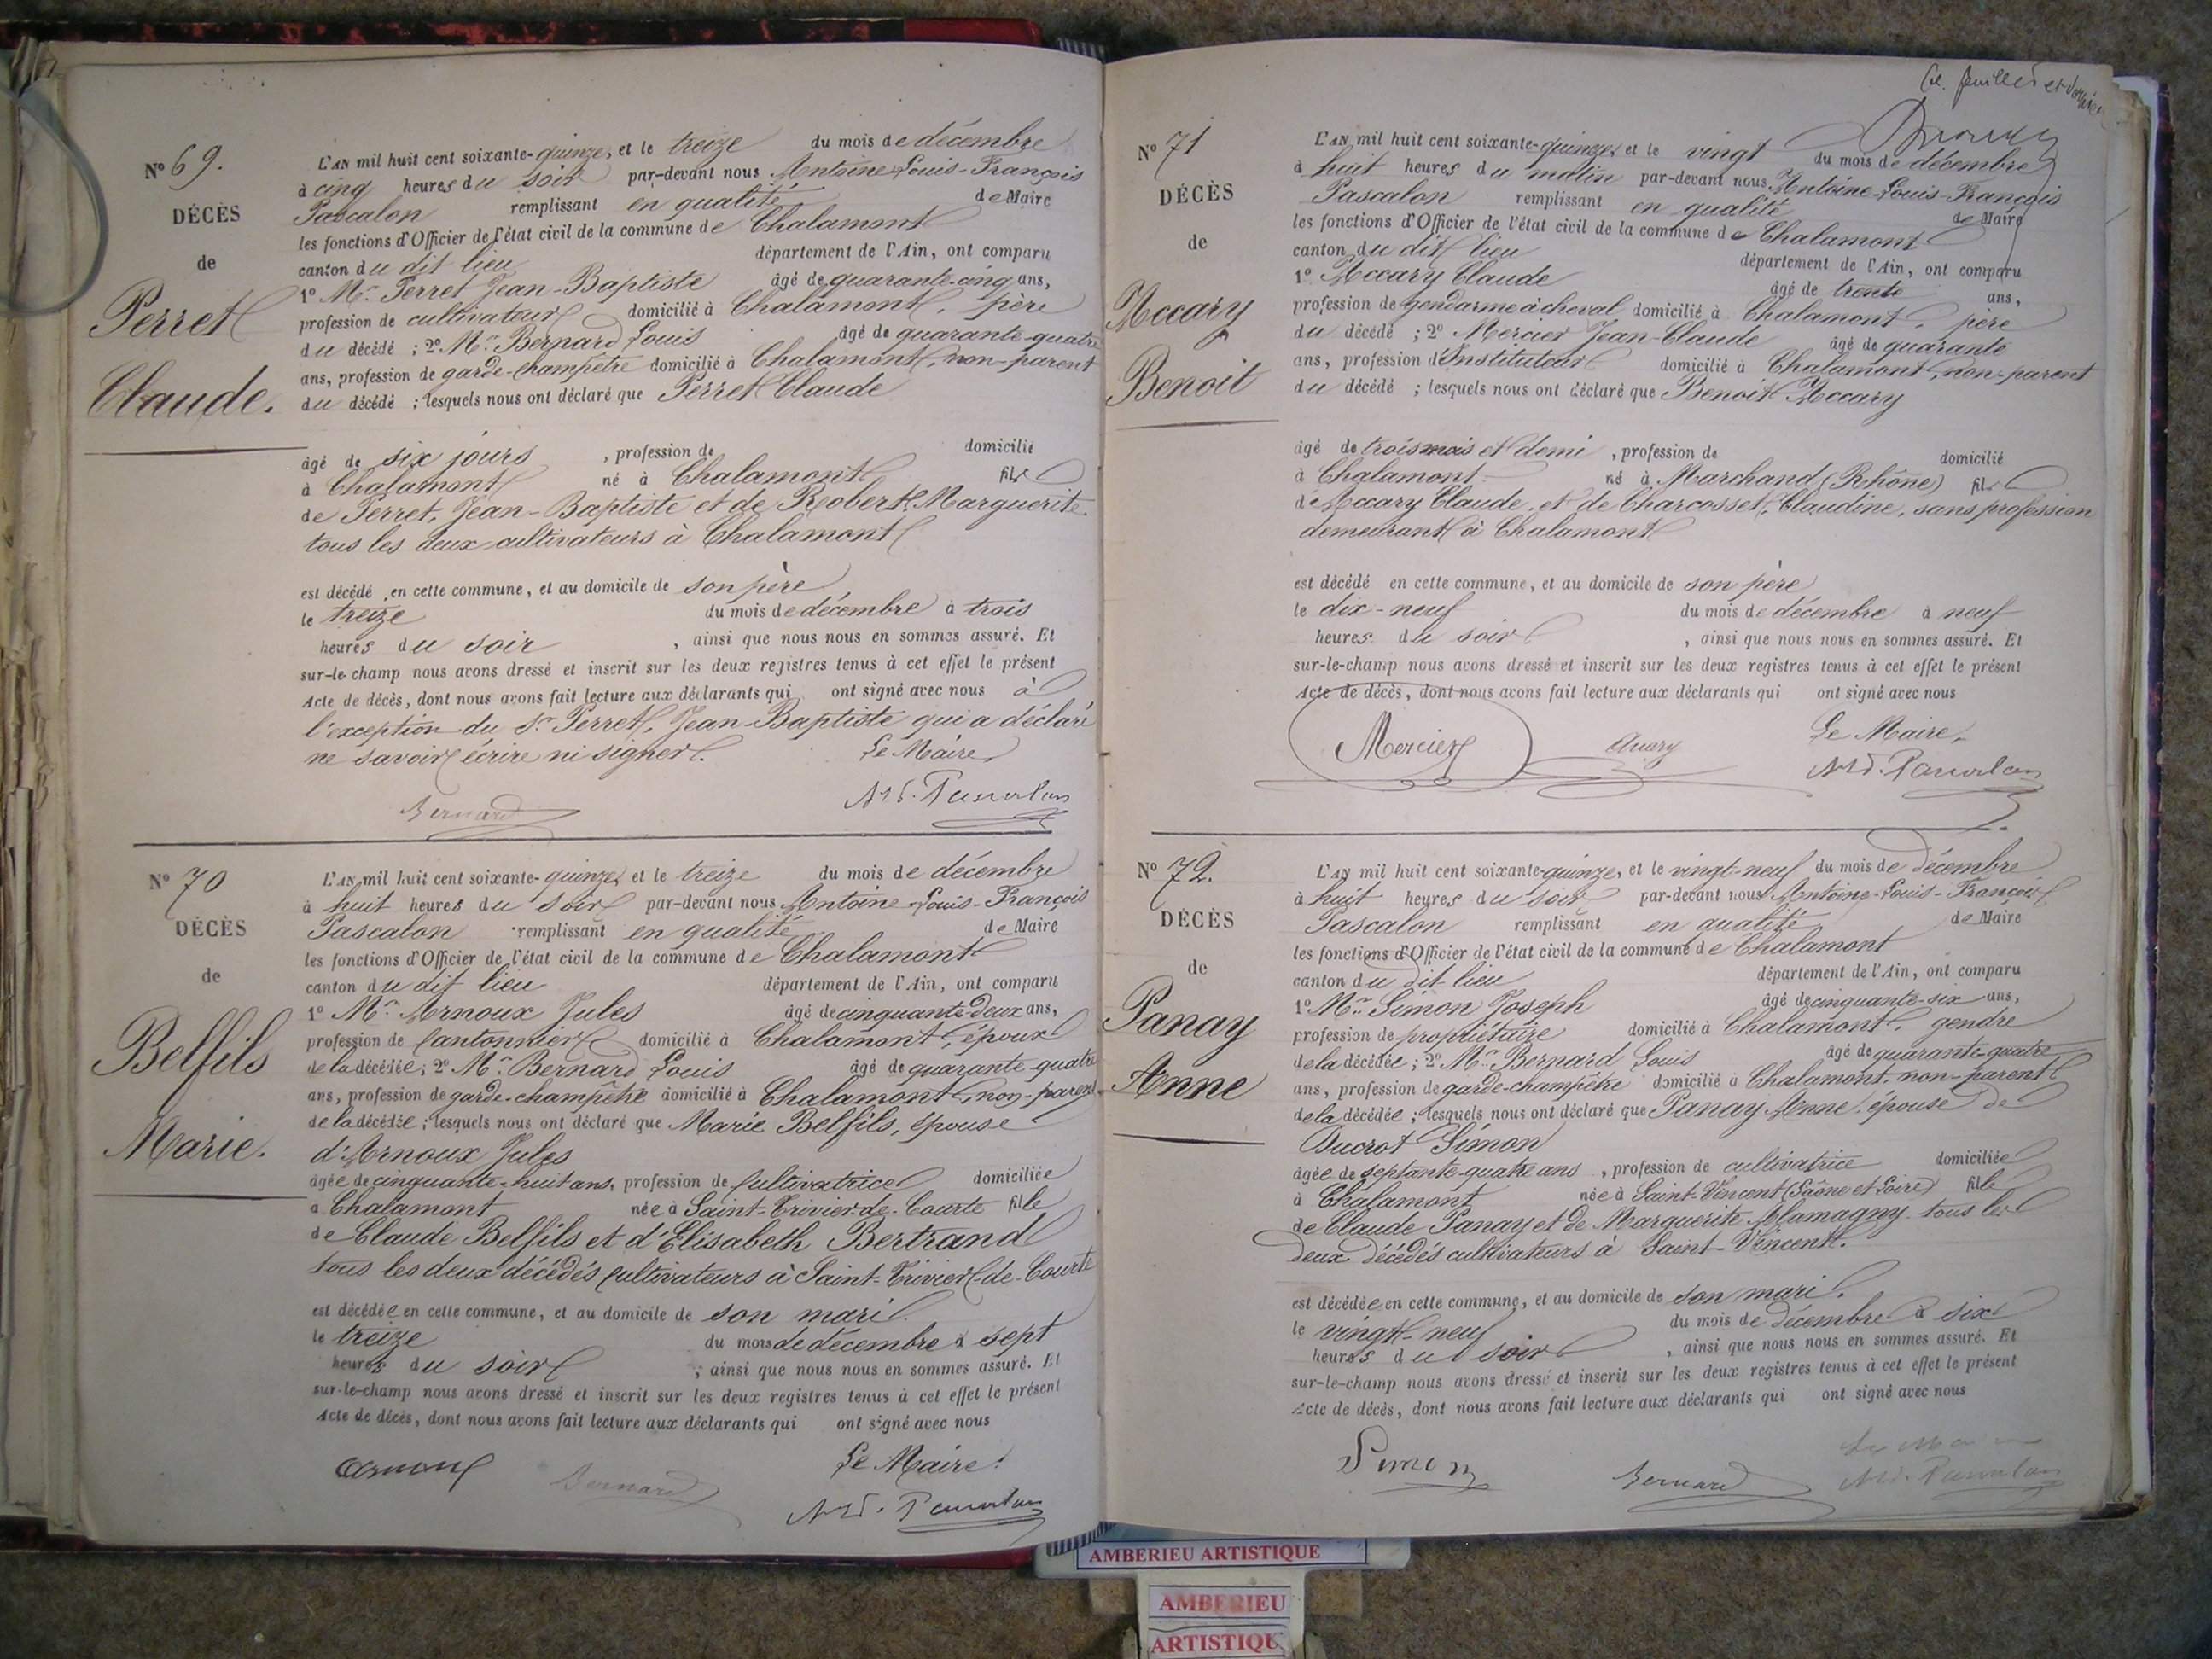 No 69.
DÉCÈS
de
Perret
Claude.
L'AN mil huit cent soixante-quinze, et le treize du mois de décembre
à cinq heures du soir par-devant nous Antoine-Louis-François
Pascalon remplissant en qualité de Maire
les fonctions d'Officier de l'état civil de la commune de Chalamont
canton du dit lieu département de l'Ain, ont comparu
1o Mr Perret Jean-Baptiste âgé de quarante-cinq ans,
profession de cultivateur domicilié à Chalamont, père
du décédé ; 2o Mr Bernard Louis âgé de quarante-quatre
ans, profession de garde-champêtre domicilié à Chalamont, non-parent
du décédé ; lesquels nous ont déclaré que Perret Claude
âgé de six jours , profession de domicilié
à Chalamont né à Chalamont fils
de Perret, Jean-Baptiste et de Robert, Marguerite
tous les deux cultivateurs à Chalamont
est décédé en cette commune, et au domicile de son père
le treize du mois de décembre à trois
heures du soir , ainsi que nous nous en sommes assuré. Et
sur-le-champ nous avons dressé et inscrit sur les deux registres tenus à cet effet le présent
Acte de décès, dont nous avons fait lecture aux déclarants qui ont signé avec nous à
l'exception du Sr Perret, Jean-Baptiste qui a déclaré
ne savoir écrire ni signer. Le Maire,
Bernard Ard. Pascalon
No 70
DÉCÈS
de
Belfils
Marie.
L'AN mil huit cent soixante-quinze, et le treize du mois de décembre
à huit heures du soir par-devant nous Antoine-Louis-François
Pascalon remplissant en qualité de Maire
les fonctions d'Officier de l'état civil de la commune de Chalamont
canton du dit lieu département de l'Ain, ont comparu
1o Mr Arnoux Jules âgé de cinquante-deux ans,
profession de Cantonnier domicilié à Chalamont, époux
de la décédée ; 2o Mr Bernard Louis âgé de quarante-quatre
ans, profession de garde-champêtre domicilié à Chalamont, non-parent
de la décédée ; lesquels nous ont déclaré que Marie Belfils, épouse
d'Arnoux Jules
âgée de cinquante-huit ans, profession de cultivatrice domiciliée
à Chalamont née à Saint-Trivier-de-Courte fille
de Claude Belfils et d'Elisabeth Bertrand
tous les deux décédés cultivateurs à Saint-Trivier-de-Courte
est décédée en cette commune, et au domicile de son mari
le treize du mois de décembre à sept
heures du soir ; ainsi que nous nous en sommes assuré. Et
sur-le-champ nous avons dressé et inscrit sur les deux registres tenus à cet effet le présent
Acte de décès, dont nous avons fait lecture aux déclarants qui ont signé avec nous
Arnoux Bernard Le Maire,
Ard. Pascalon
Col. feuillet et dernier
No 71
DÉCÈS
de
Accary
Benoit
L'AN mil huit cent soixante-quinze, et le vingt du mois de décembre
à huit heures du matin par-devant nous Antoine-Louis-François
Pascalon remplissant en qualité de Maire
les fonctions d'Officier de l'état civil de la commune de Chalamont
canton du dit lieu département de l'Ain, ont comparu
1o Accary Claude âgé de trente ans,
profession de gendarme à cheval domicilié à Chalamont, père
du décédé ; 2o Mercier Jean-Claude âgé de quarante
ans, profession d'Instituteur domicilié à Chalamont, non-parent
du décédé ; lesquels nous ont déclaré que Benoit Accary
âgé de trois mois et demi , profession de domicilié
à Chalamont né à Marchand (Rhône) fils
de Accary Claude, et de Charcosset, Claudine, sans profession
demeurant à Chalamont
est décédé en cette commune, et au domicile de son père
le dix-neuf du mois de décembre à neuf
heures du soir , ainsi que nous nous en sommes assuré. Et
sur-le-champ nous avons dressé et inscrit sur les deux registres tenus à cet effet le présent
Acte de décès, dont nous avons fait lecture aux déclarants qui ont signé avec nous
Le Maire,
Mercier Ard. Pascalon
No 72.
DÉCÈS
de
Panay
Anne
L'AN mil huit cent soixante-quinze, et le vingt-neuf du mois de décembre
à huit heures du soir par-devant nous Antoine-Louis-François
Pascalon remplissant en qualité de Maire
les fonctions d'Officier de l'état civil de la commune de Chalamont
canton du dit lieu département de l'Ain, ont comparu
1o Mr Simon Joseph âgé de cinquante-six ans,
profession de propriétaire domicilié à Chalamont, gendre
de la décédée ; 2o Mr Bernard Louis âgé de quarante-quatre
ans, profession de garde-champêtre domicilié à Chalamont, non-parent
de la décédée ; lesquels nous ont déclaré que Panay Anne, épouse de
Ducrot Simon
âgée de septante-quatre ans , profession de cultivatrice domiciliée
à Chalamont née à Saint-Vincent (Saône et Loire) fille
de Claude Panay et de Marguerite Alamagny tous les
deux décédés cultivateurs à Saint-Vincent.
est décédée en cette commune, et au domicile de son mari.
le vingt-neuf du mois de décembre à six
heures du soir , ainsi que nous nous en sommes assuré. Et
sur-le-champ nous avons dressé et inscrit sur les deux registres tenus à cet effet le présent
Acte de décès, dont nous avons fait lecture aux déclarants qui ont signé avec nous
Le Maire
Simon Bernard Ard. Pascalon
AMBERIEU ARTISTIQUE
AMBERIEU
ARTISTIQU